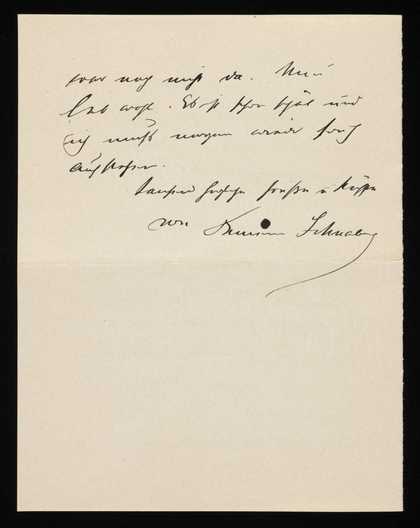 war noch nicht da. Nun
leb wohl. Es ist schon spät und
ich muß morgen wieder früh
aufstehen.
Tausend herzliche Grüße u Küsse
von